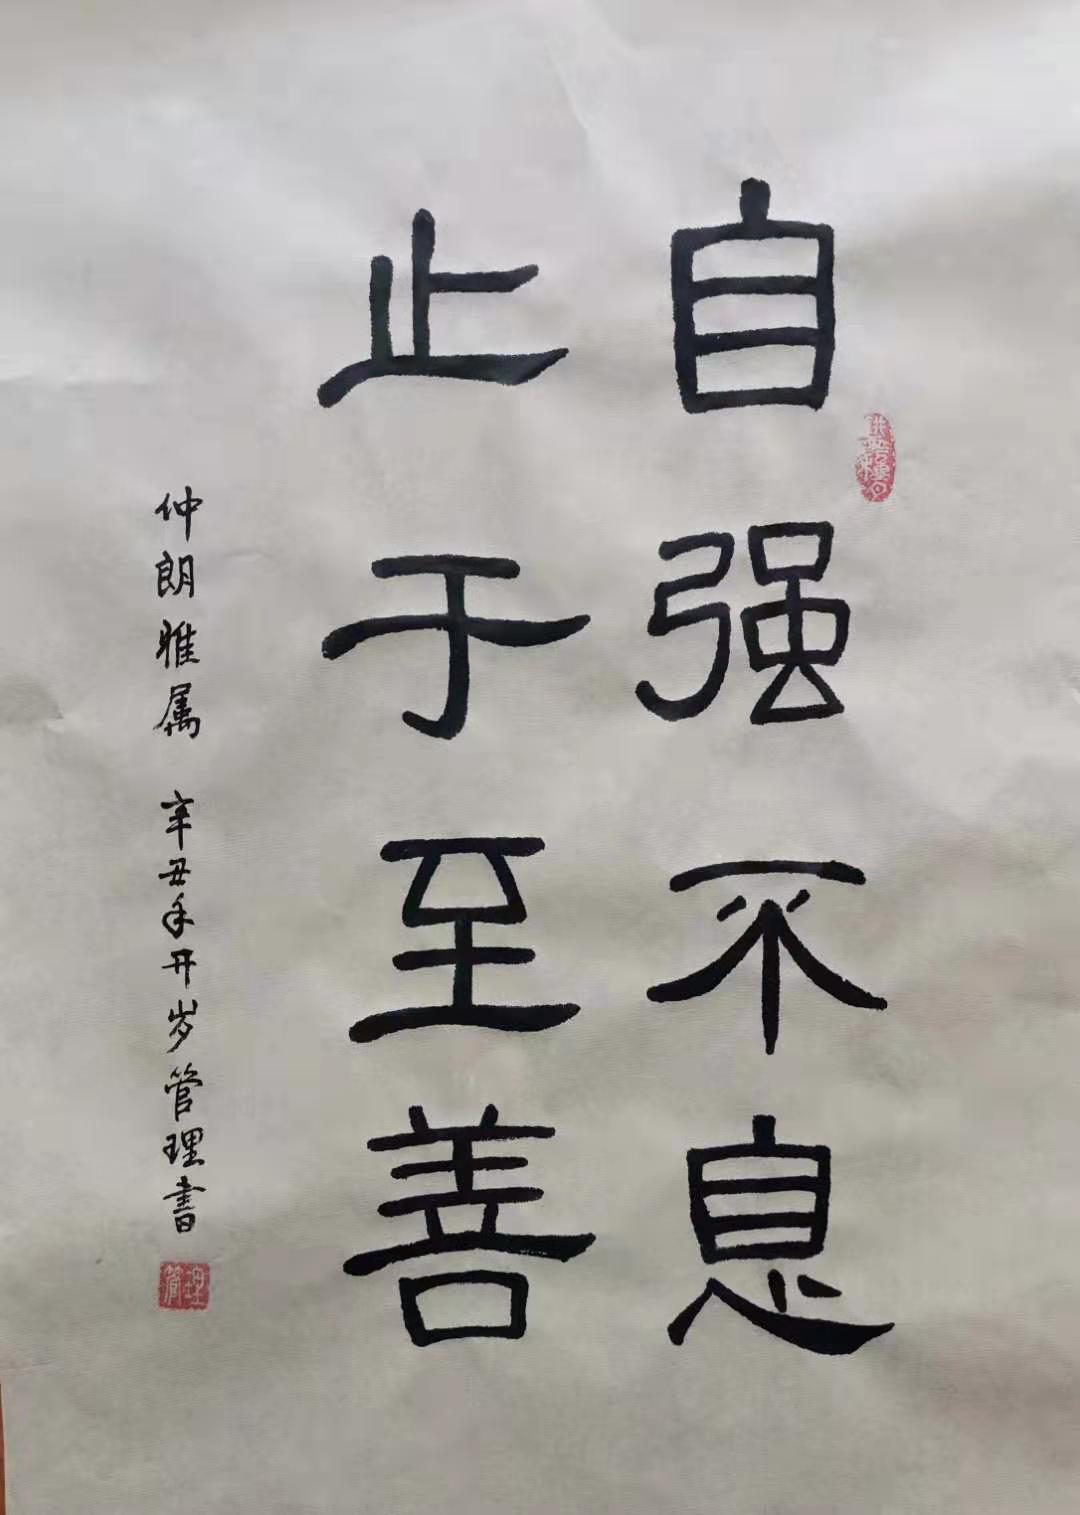 自强不息
止于至善
仲朗雅属 辛丑年开岁管理書
管理